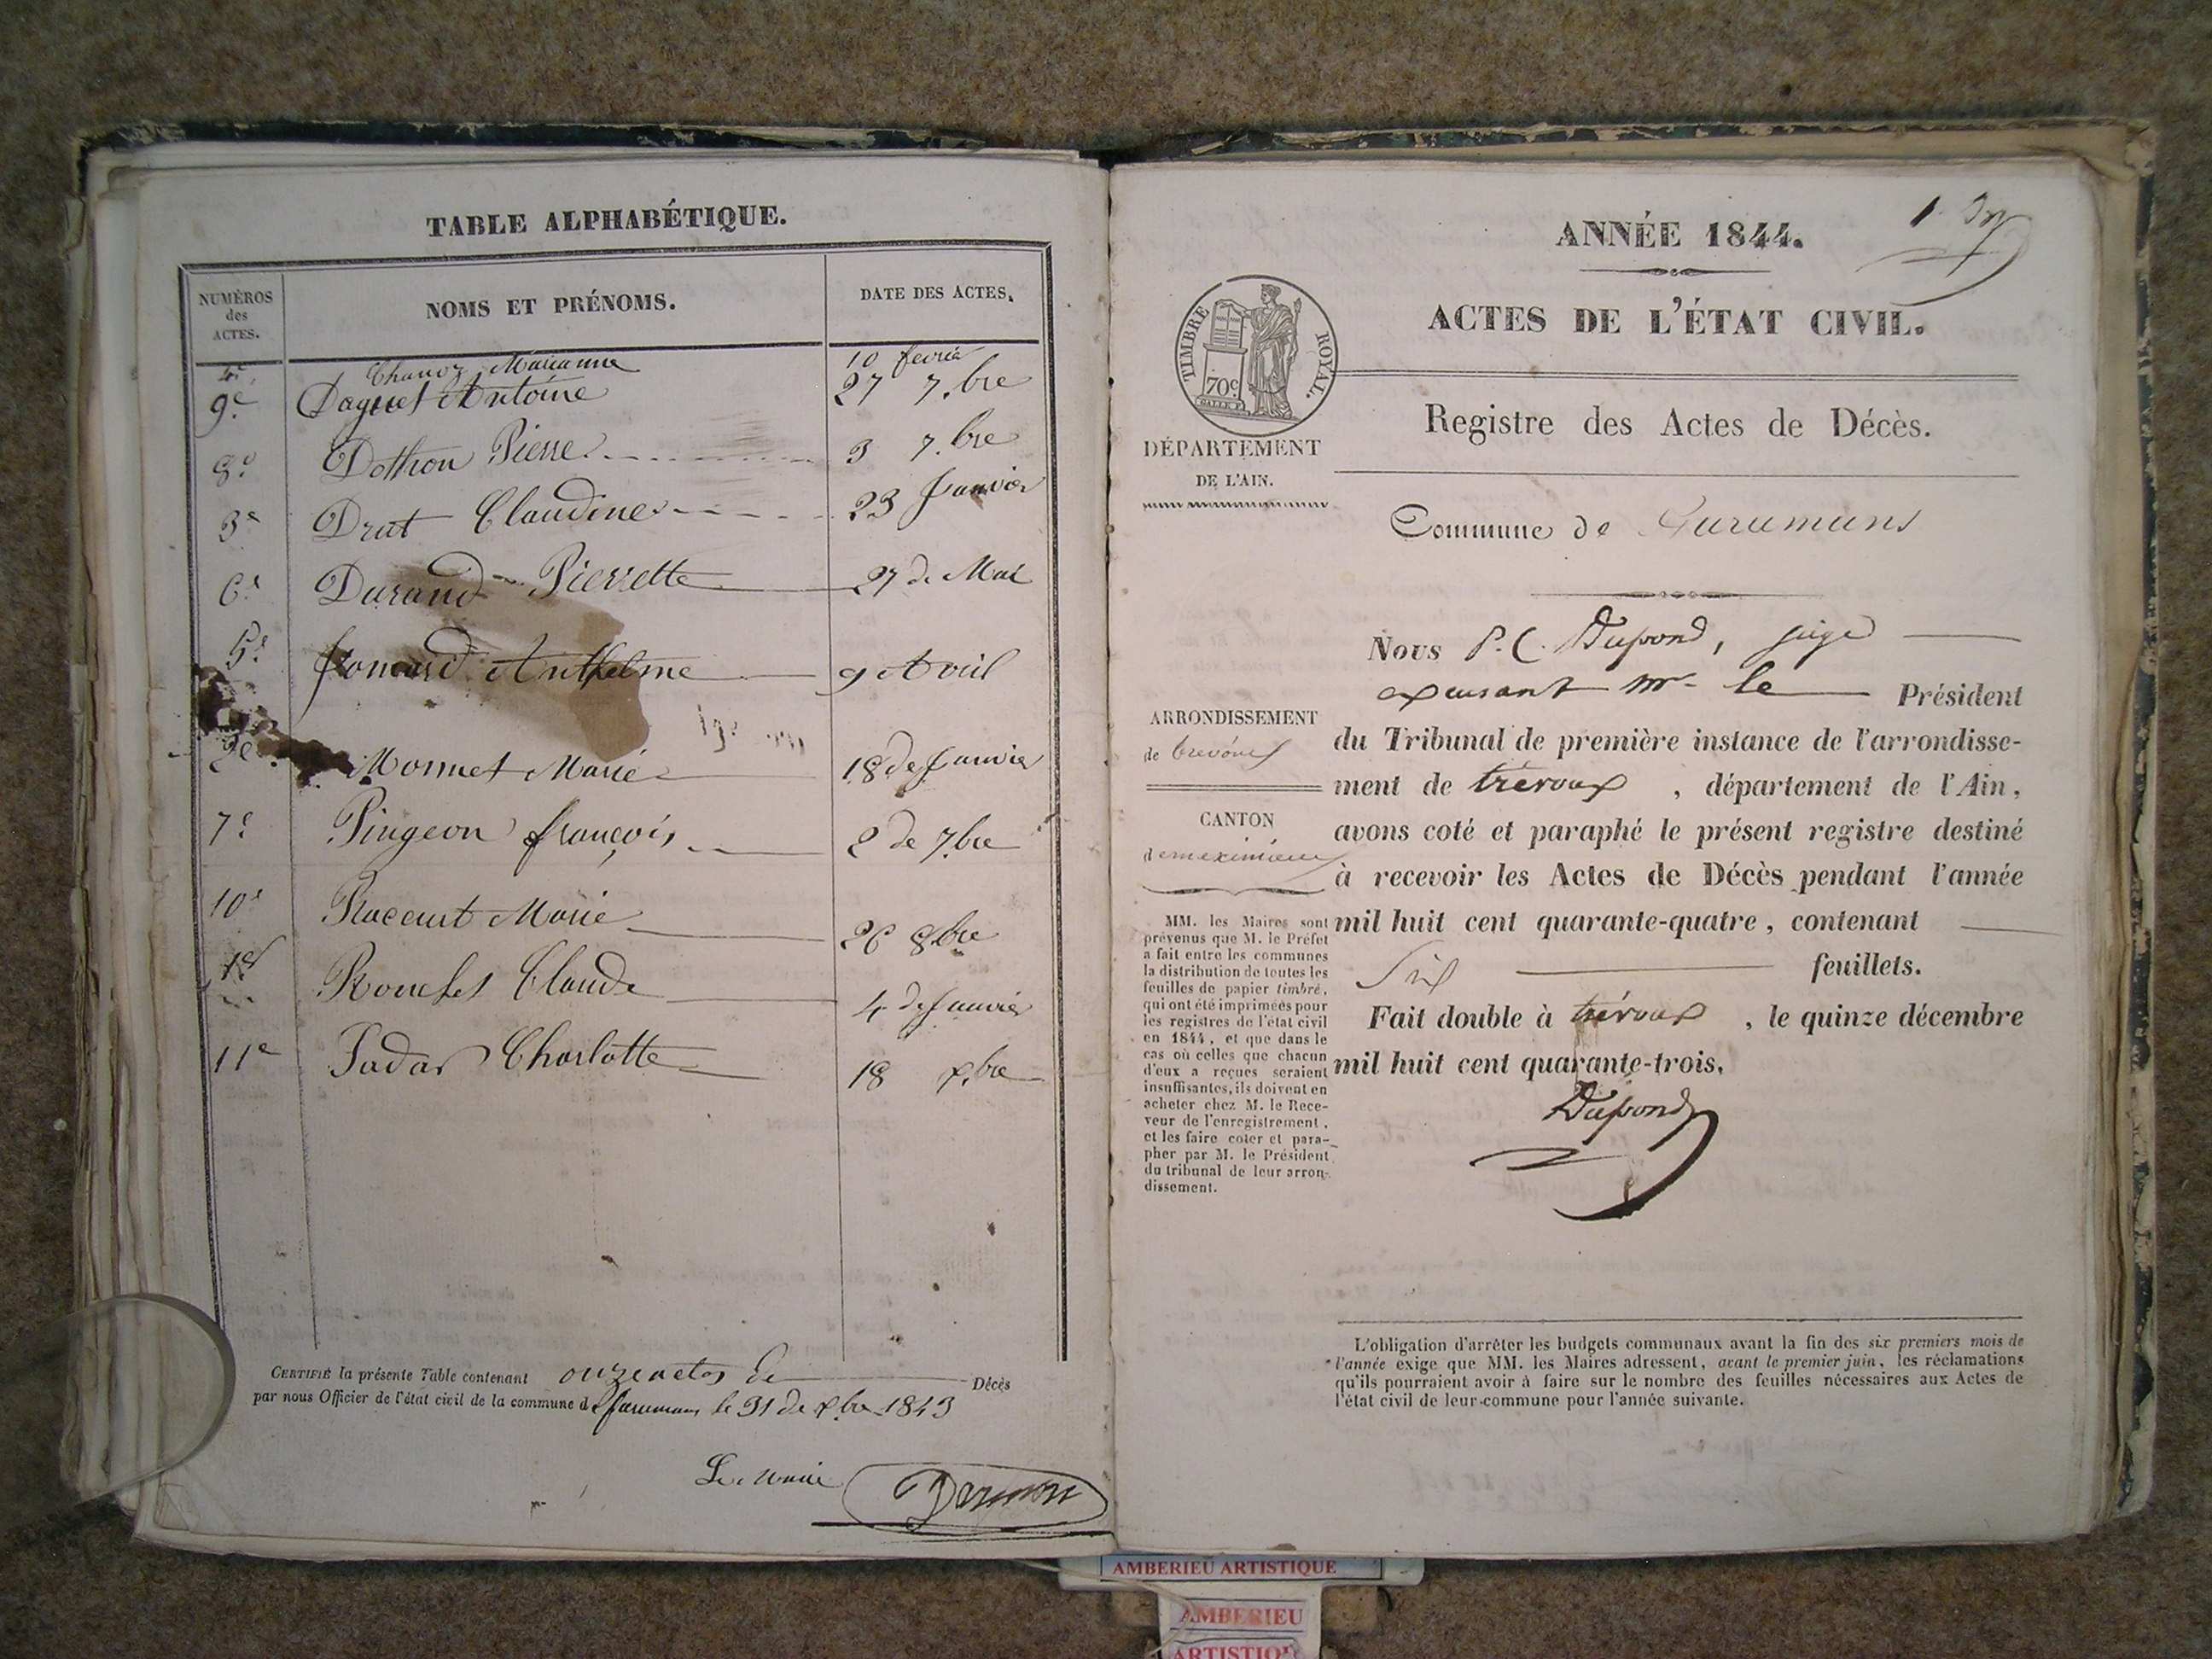 TABLE ALPHABÉTIQUE.
NUMÉROS des ACTES.
NOMS ET PRÉNOMS.
DATE DES ACTES.
4e Chanoz Marianne 10 fevrier
9e Daguet Antoine 27 7.bre
8e Dothon Pierre 3 7.bre
3e Drut Claudine 23 Janvier
6e Durand Pierrette 27 de Mai
5e Anthelme 9 Avril
2e Monnet Marie 18 de Janvier
7e Pingeon françois 2 de 7.bre
10e Raccurt Marie 26 8.bre
1er Claude 4 de Janvier
11e Charlotte 18 x.bre
CERTIFIÉ la présente Table contenant onze actes de Décès
par nous Officier de l'état civil de la commune de faramans le 31 de x.bre 1843
Le maire
ANNÉE 1844.
ACTES DE L'ÉTAT CIVIL.
TIMBRE ROYAL.
70c
DÉPARTEMENT
DE L'AIN.
Registre des Actes de Décès.
Commune de Faramans
Nous P. C. Dupond, juge
mr. le Président
ARRONDISSEMENT
de trévoux
CANTON
demeximieux
du Tribunal de première instance de l'arrondisse-
ment de trévoux , département de l'Ain,
avons coté et paraphé le présent registre destiné
à recevoir les Actes de Décès pendant l'année
mil huit cent quarante-quatre, contenant
Six feuillets.
Fait double à trévoux , le quinze décembre
mil huit cent quarante-trois,
Dupond
MM. les Maires sont
prévenus que M. le Préfet
a fait entre les communes
la distribution de toutes les
feuilles de papier timbré,
qui ont été imprimées pour
les registres de l'état civil
en 1844, et que dans le
cas où celles que chacun
d'eux a reçues seraient
insuffisantes, ils doivent en
acheter chez M. le Rece-
veur de l'enregistrement,
et les faire coter et para-
pher par M. le Président
du tribunal de leur arron-
dissement.
L'obligation d'arrêter les budgets communaux avant la fin des six premiers mois de
l'année exige que MM. les Maires adressent, avant le premier juin, les réclamations
qu'ils pourraient avoir à faire sur le nombre des feuilles nécessaires aux Actes de
l'état civil de leur commune pour l'année suivante.
AMBERIEU ARTISTIQUE
AMBERIEU